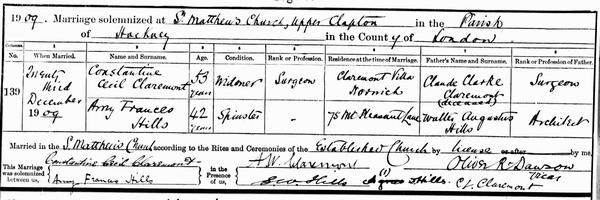 1909. Marriage solemnized at St. Matthew's Church, Upper Clapton in the Parish
of Hackney in the County of London
Columns. 1 2 3 4 5 6 7 8
No. When Married. Name and Surname. Age. Condition. Rank or Profession. Residence at the time of Marriage. Father's Name and Surname. Rank or Profession of Father.
139 Twenty third December 1909 Constantine Cecil Claremont 53 years Widower Surgeon Claremont Villa Norwich Claude Clarke Claremont (deceased) Surgeon
Amy Frances Hills 42 years Spinster — 75 Mt. Pleasant Lane Walter Augustus Hills Architect
Married in the St. Matthew's Church according to the Rites and Ceremonies of the Established Church by licence or after by me,
This Marriage was solemnized between us, Constantine Cecil Claremont
Amy Frances Hills
in the Presence of us, Claremont
Hills (1) Hills C. L. Claremont
Oliver R. Dawson
Vicar